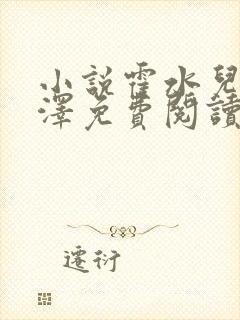 小說霍水兒
澤免費閱讀
遷衍